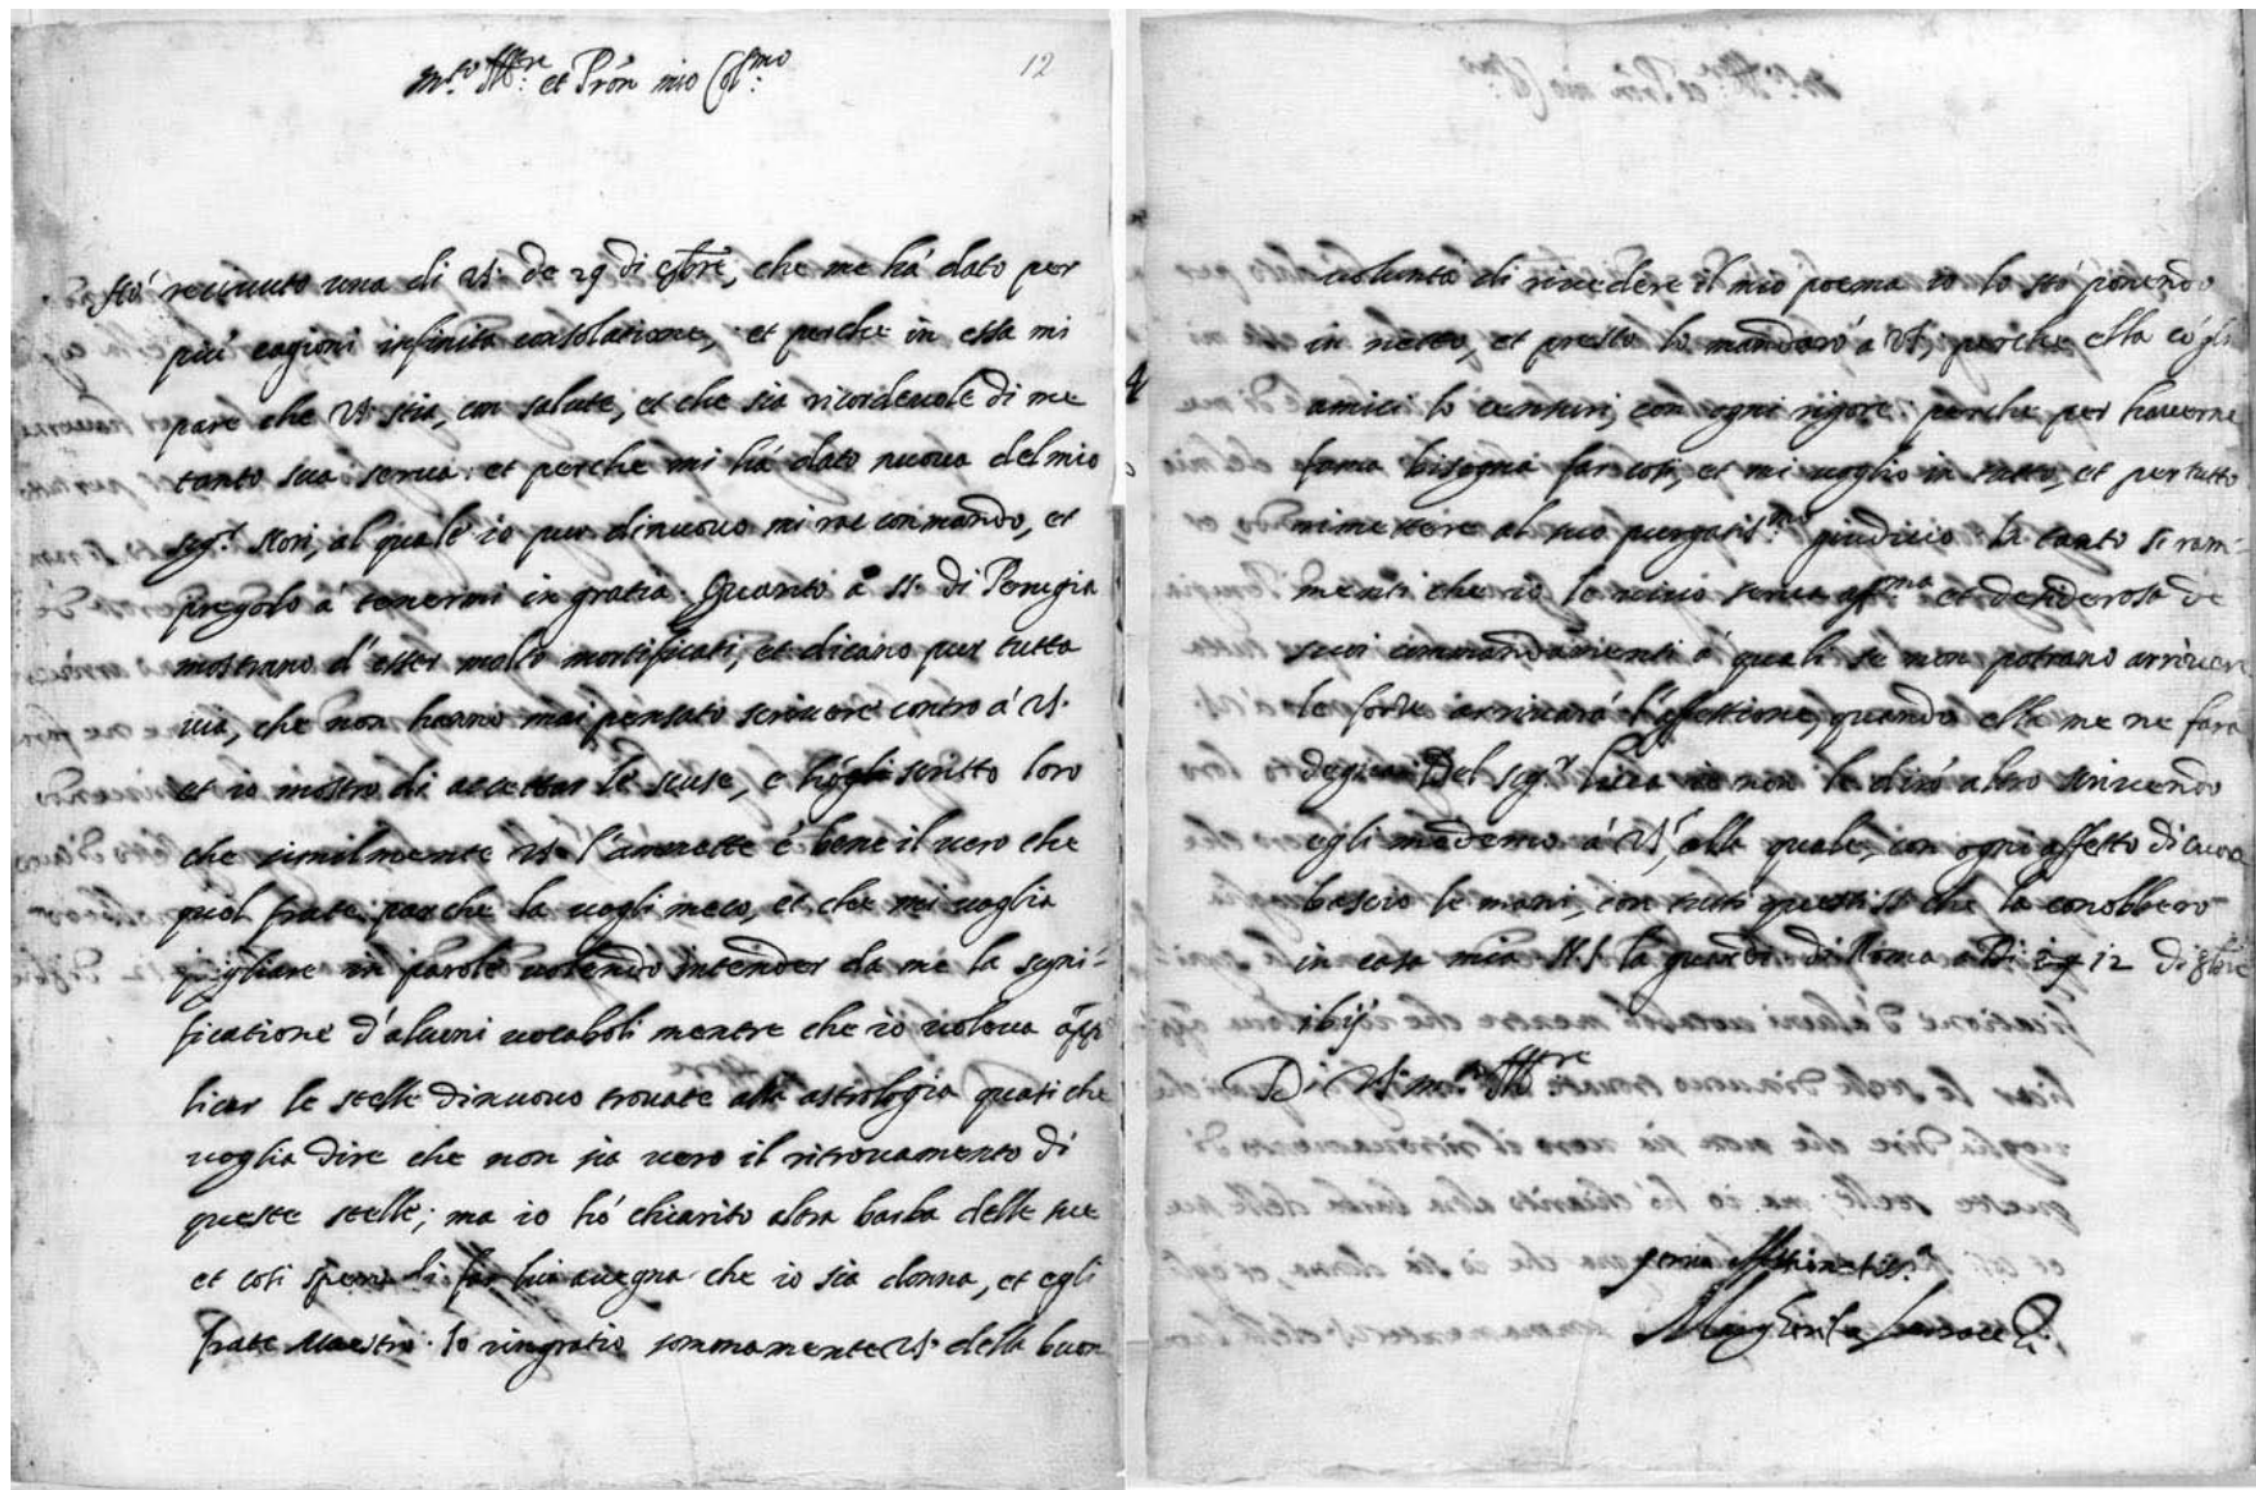 m.to Ill.re et Prõn mio Col.mo
12
Hó riceuuto una di VS. de 29 di 7bre, che me há dato per
piú cagioni infinita consolatione, et perche in essa mi
pare che VS. stia con salute, et che sia ricordeuole di me
tanto sua serua. et perche mi há dato nuoua del mio
sig.r Stori, al quale io pur dinuouo mi raccommando, et
pregolo á tenermi in gratia. Quanto á SS. di Perugia
mostrano d'esser molto mortificati, et dicano per tutta
uia, che non hanno mai pensato scriuere contro á VS.
et io mostro di accettar le scuse, e hógli scritto loro
che similmente VS. l'ammette é bene il uero che
quel frate par che la uogli meco, et che mi uoglia
pigliare in parole uolendo intender da me la signi-
ficatione d'alcuni uocaboli mentre che io uoleua app
licar le stelle dinuouo trouate alla astrologia quasi che
uoglia dire che non sia uero il ritrouamento di
queste stelle; ma io hó chiarito altra barba delle sue
et cosi spero di far lui auegna che io sia donna, et egli
frate Maestro. Io ringratio sommamente VS. della buon
uoluntá di riuedere il mio poema io lo stó ponendo
in netto, et presto lo mandaró á VS, perche essa có gli
amici lo censuri, con ogni rigore. perche per hauerne
fama bisogna far cosi, et mi uoglio in tutto, et per tutto
rimettere al suo purgatiss.mo giudicio. In tanto si ram-
menti che io le uiuo serua aff.ma et desiderosa de
suoi commandamenti á quali se non potrano arriuar
le forze arriuará l'affettione, quando ella me ne fara
degna. Del sig.r Luca io non le diró altro scriuendo
egli medemo á VS, alla quale, con ogni affetto di cuore
bascio le mani, con tutti questi SS. che la conobbero
in casa mia. N.S. la guardi. di Roma a Di 12 di 8bre
1611
Di VS. m.to Ill.re
serua Affetionatiss.a
Margherita Sarrocchi